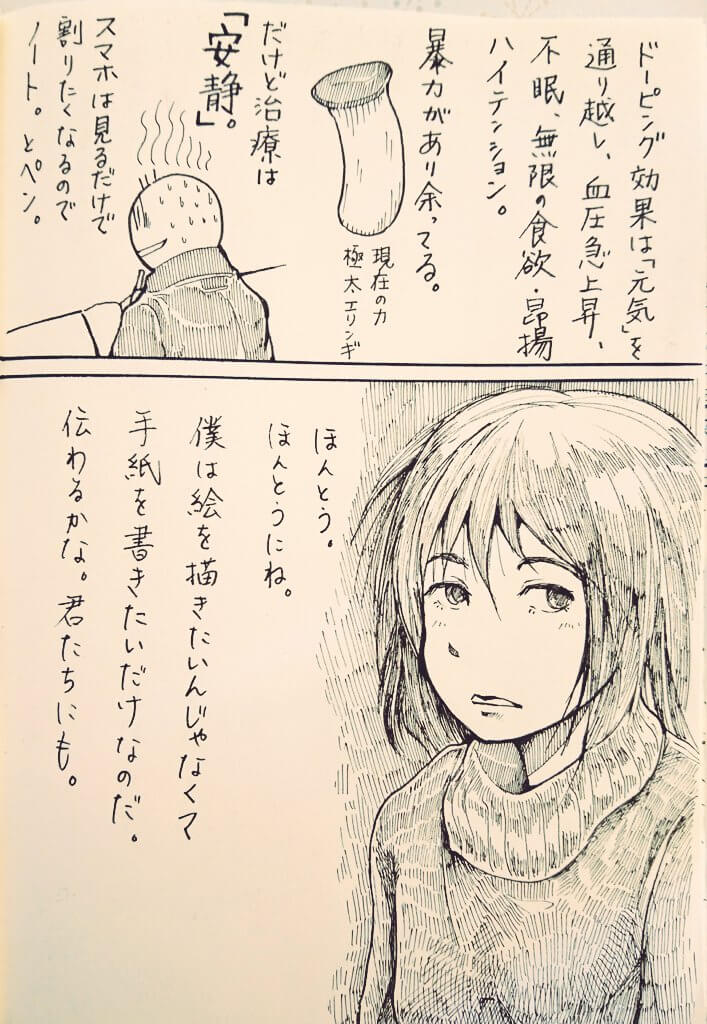 ドーピング効果は「元気」を
通り越し、血圧急上昇、
不眠、無限の食欲・昂揚
ハイテンション。
暴力があり余ってる。
現在の力
極太エリンギ
だけど治療は
「安静」。
スマホは見るだけで
割りたくなるので
ノート。とペン。
ほんとう。
ほんとうにね。
僕は絵を描きたいんじゃなくて
手紙を書きたいだけなのだ。
伝わるかな。君たちにも。